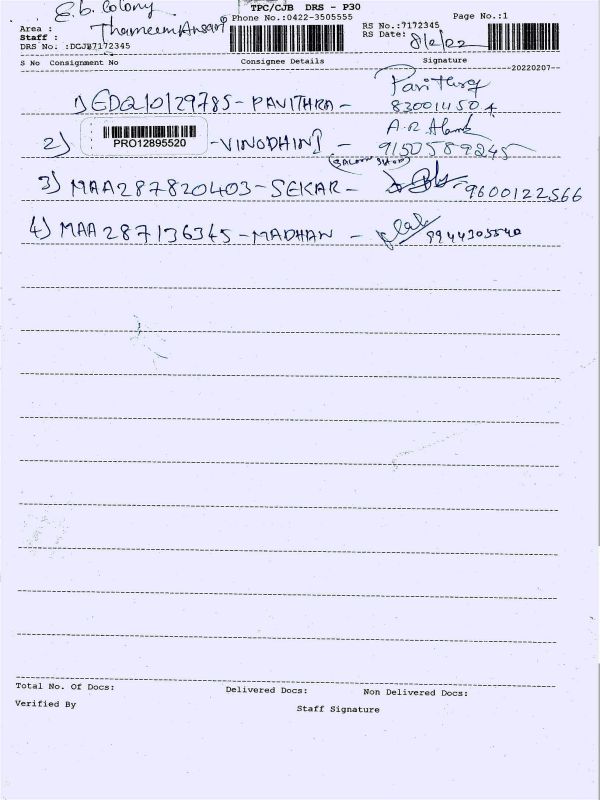 E.b. Colony TPC/CJB DRS - P30
Area : Phone No.:0422-3505555 Page No.:1
Staff : Thameem Ansari RS No.:7172345
DRS No. :DCJB7172345 RS Date: 8/2/22
S No Consignment No Consignee Details Signature
20220207
1) EDQ10129785-PAVITHRA- Pavithra
830014504
2) PRO12895520 -VINODHINI - A.R
9150589245
(SALOON SHOP)
3) MAA287820403-SEKAR- 9600122566
4) MAA287136345-MADHAN - 9944305540
Total No. Of Docs: Delivered Docs: Non Delivered Docs:
Verified By Staff Signature